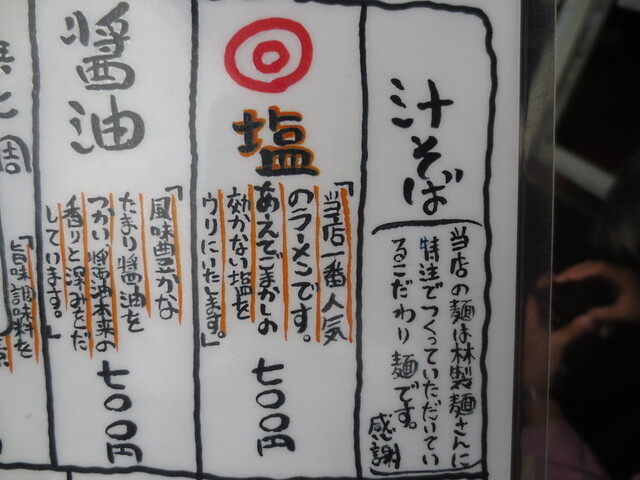 汁そば
当店の麺は林製麺さんに
特注でつくっていただいてい
るこだわり麺です。
感謝
塩
「当店一番人気
のラーメンです。
あえてごまかしの
効かない塩を
ウリにいたします。」
七〇〇円
醤油
「風味豊かな
たまり醤油を
つかい、醤油本来の
香りと深みをだ
しています。」
七〇〇円
「旨味調味料を